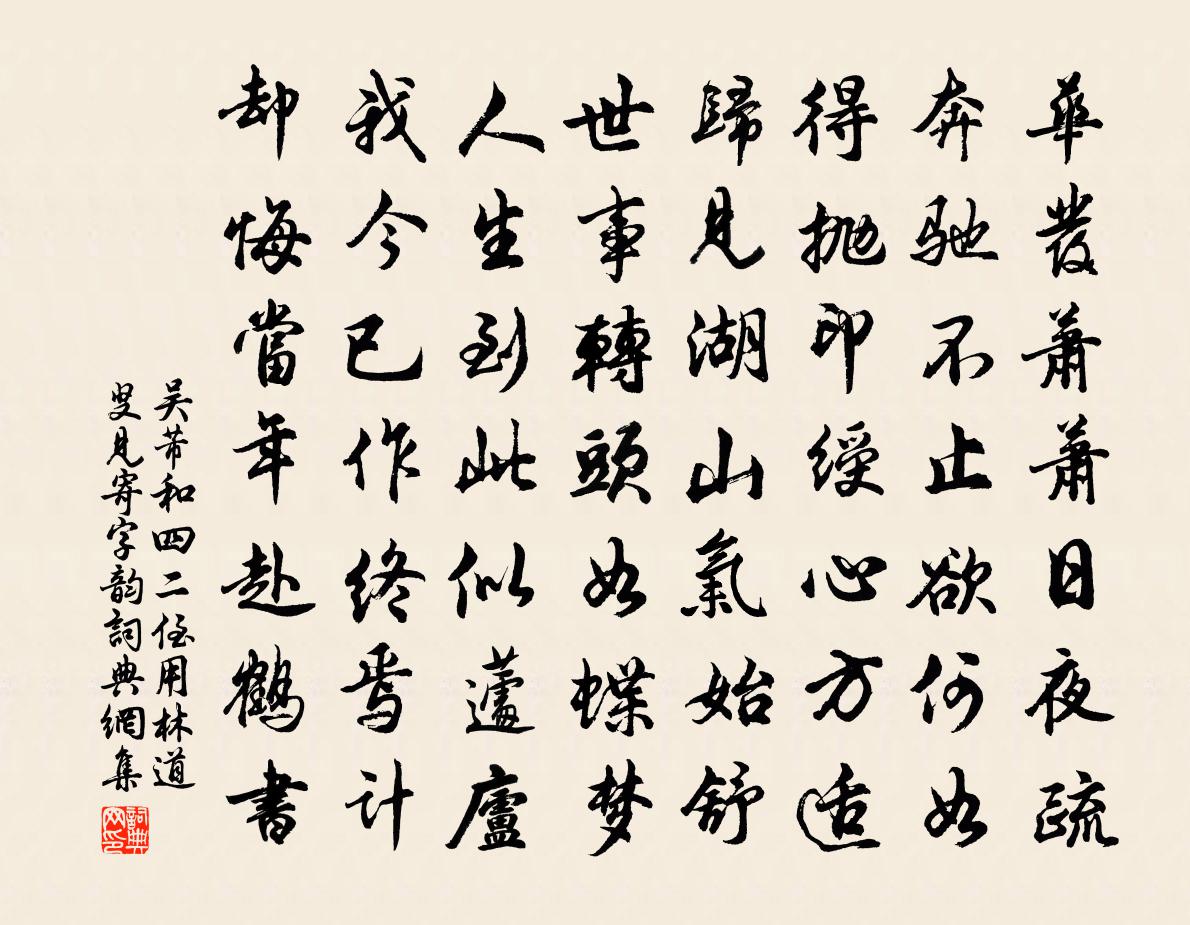 華發蕭蕭日夜疏
奔馳不止欲何如
得拋印綬心方适
歸見湖山氣始舒
世事轉頭如蝶梦
人生到此似蘧廬
我今已作終焉计
却悔當年赴鶴書
吴芾和四二侄用林道
叟見寄字韵詞典網集
詞典网印